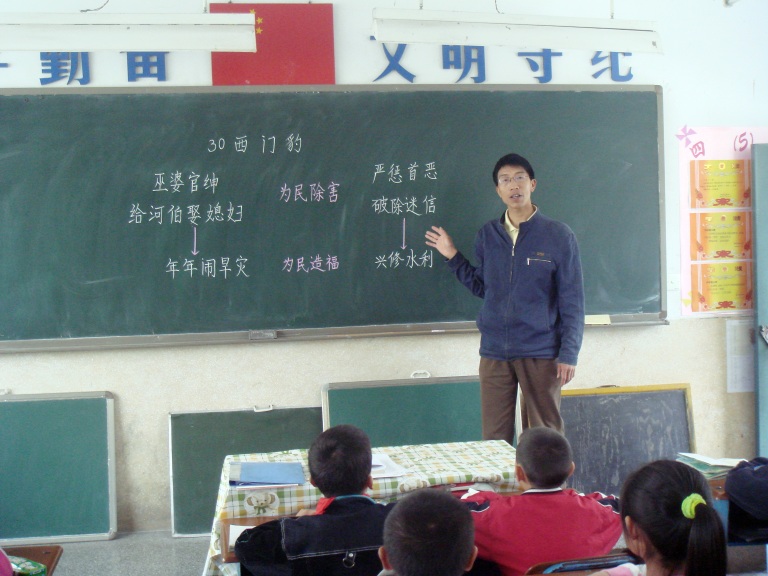 勤奋 文明守纪
30 西门豹
巫婆官绅
给河伯娶媳妇
年年闹旱灾
为民除害
为民造福
严惩首恶
破除迷信
兴修水利
四 (5)
奖
奖
奖